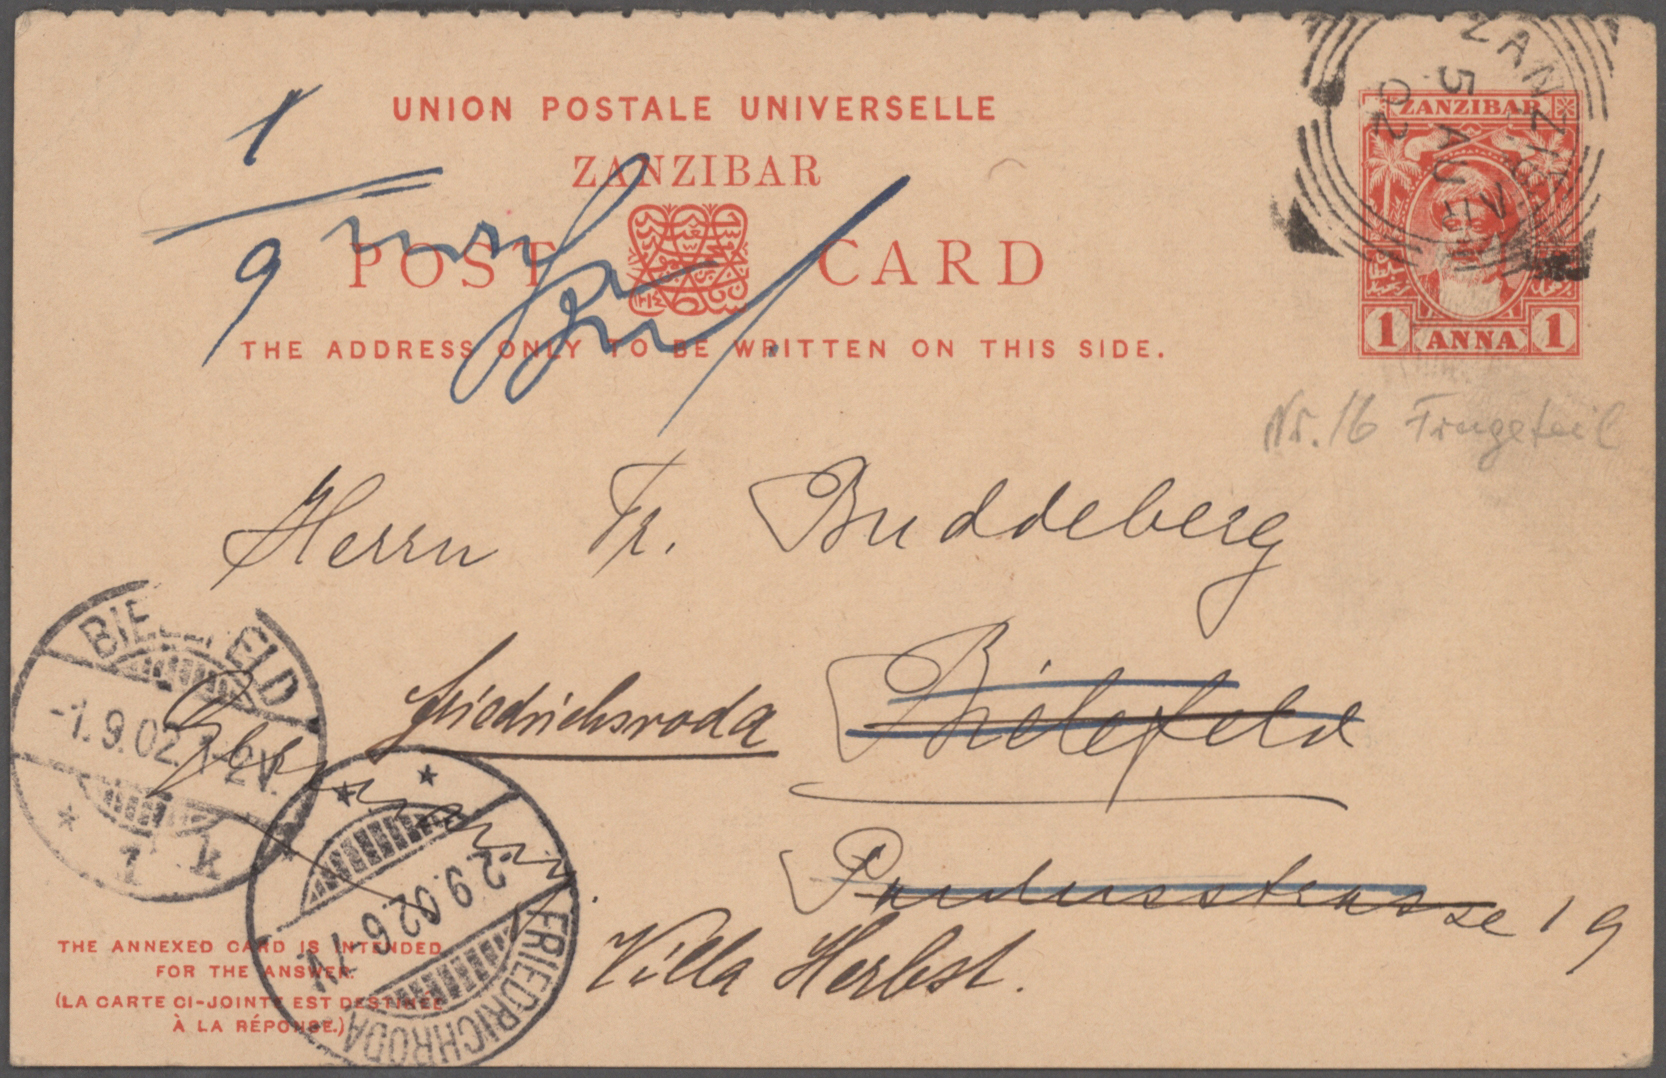 UNION POSTALE UNIVERSELLE
ZANZIBAR
POST CARD
THE ADDRESS ONLY TO BE WRITTEN ON THIS SIDE.
1
9
ZANZIBAR
5
AU
02
ZANZIBAR
1 ANNA 1
Nr. 16 Frageteil
Herrn Fr. Buddeberg
Bielefeld
Friedrichsroda
Paulusstrasse 19
Villa Herbst.
Germany.
BIELEFELD
-1.9.02. 1-2V.
* 1 k
* *
-2.9.02. 6-7V.
FRIEDRICHRODA
THE ANNEXED CARD IS INTENDED
FOR THE ANSWER.
(LA CARTE CI-JOINTE EST DESTINÉE
À LA RÉPONSE.)